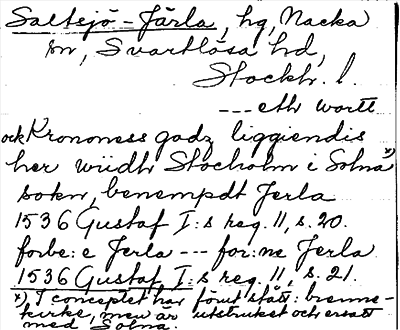 Saltsjö-Järla, hg, Nacka
sn, Svartlösa hd,
Stockh. l.
--- eth wortt
och Krononess godz liggiendis
her wiidh Stocholm i Solna x)
sokn, benempdt Jerla
1536 Gustaf I:s reg. 11, s. 20.
forbe:e Jerla --- for:ne Jerla
1536 Gustaf I:s reg. 11, s. 21.
x), I conceptet har först stått: brenne-
kirke, men är utstruket och ersatt
med Solna.